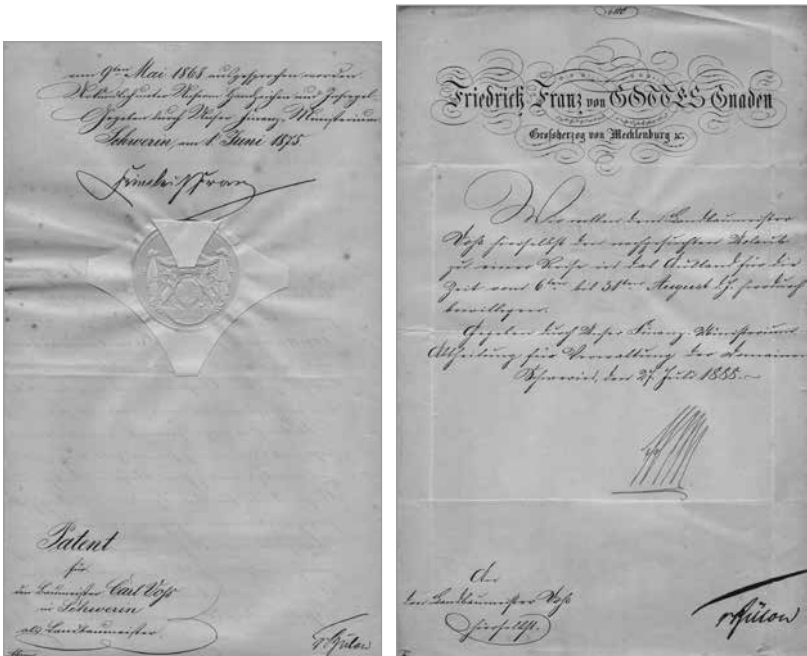 vom 9ten Mai 1868 ausgesprochen worden.
Urkundlich unter Unserm Handzeichen und Insiegel.
Gegeben durch Unser Finanz-Ministerium
Schwerin, am 1 Juni 1875.
Friedrich Franz
Patent
für
den Baumeister Carl Voß
in Schwerin
als Landbaumeister
vBülow
Friedrich Franz von GOTTES Gnaden
Großherzog von Mecklenburg &c.
Wir wollen dem Landbaumeister
Voß hierselbst den nachgesuchten Urlaub
zu einer Reise in das Ausland für die
Zeit vom 6ten bis 31sten August d.J. hierdurch
bewilligen.
Gegeben durch Unser Finanz-Ministerium
Abtheilung für Verwaltung der Domainen
Schwerin, den 27. Juli 1888.
An
den Landbaumeister Voß
hierselbst.
vBülow